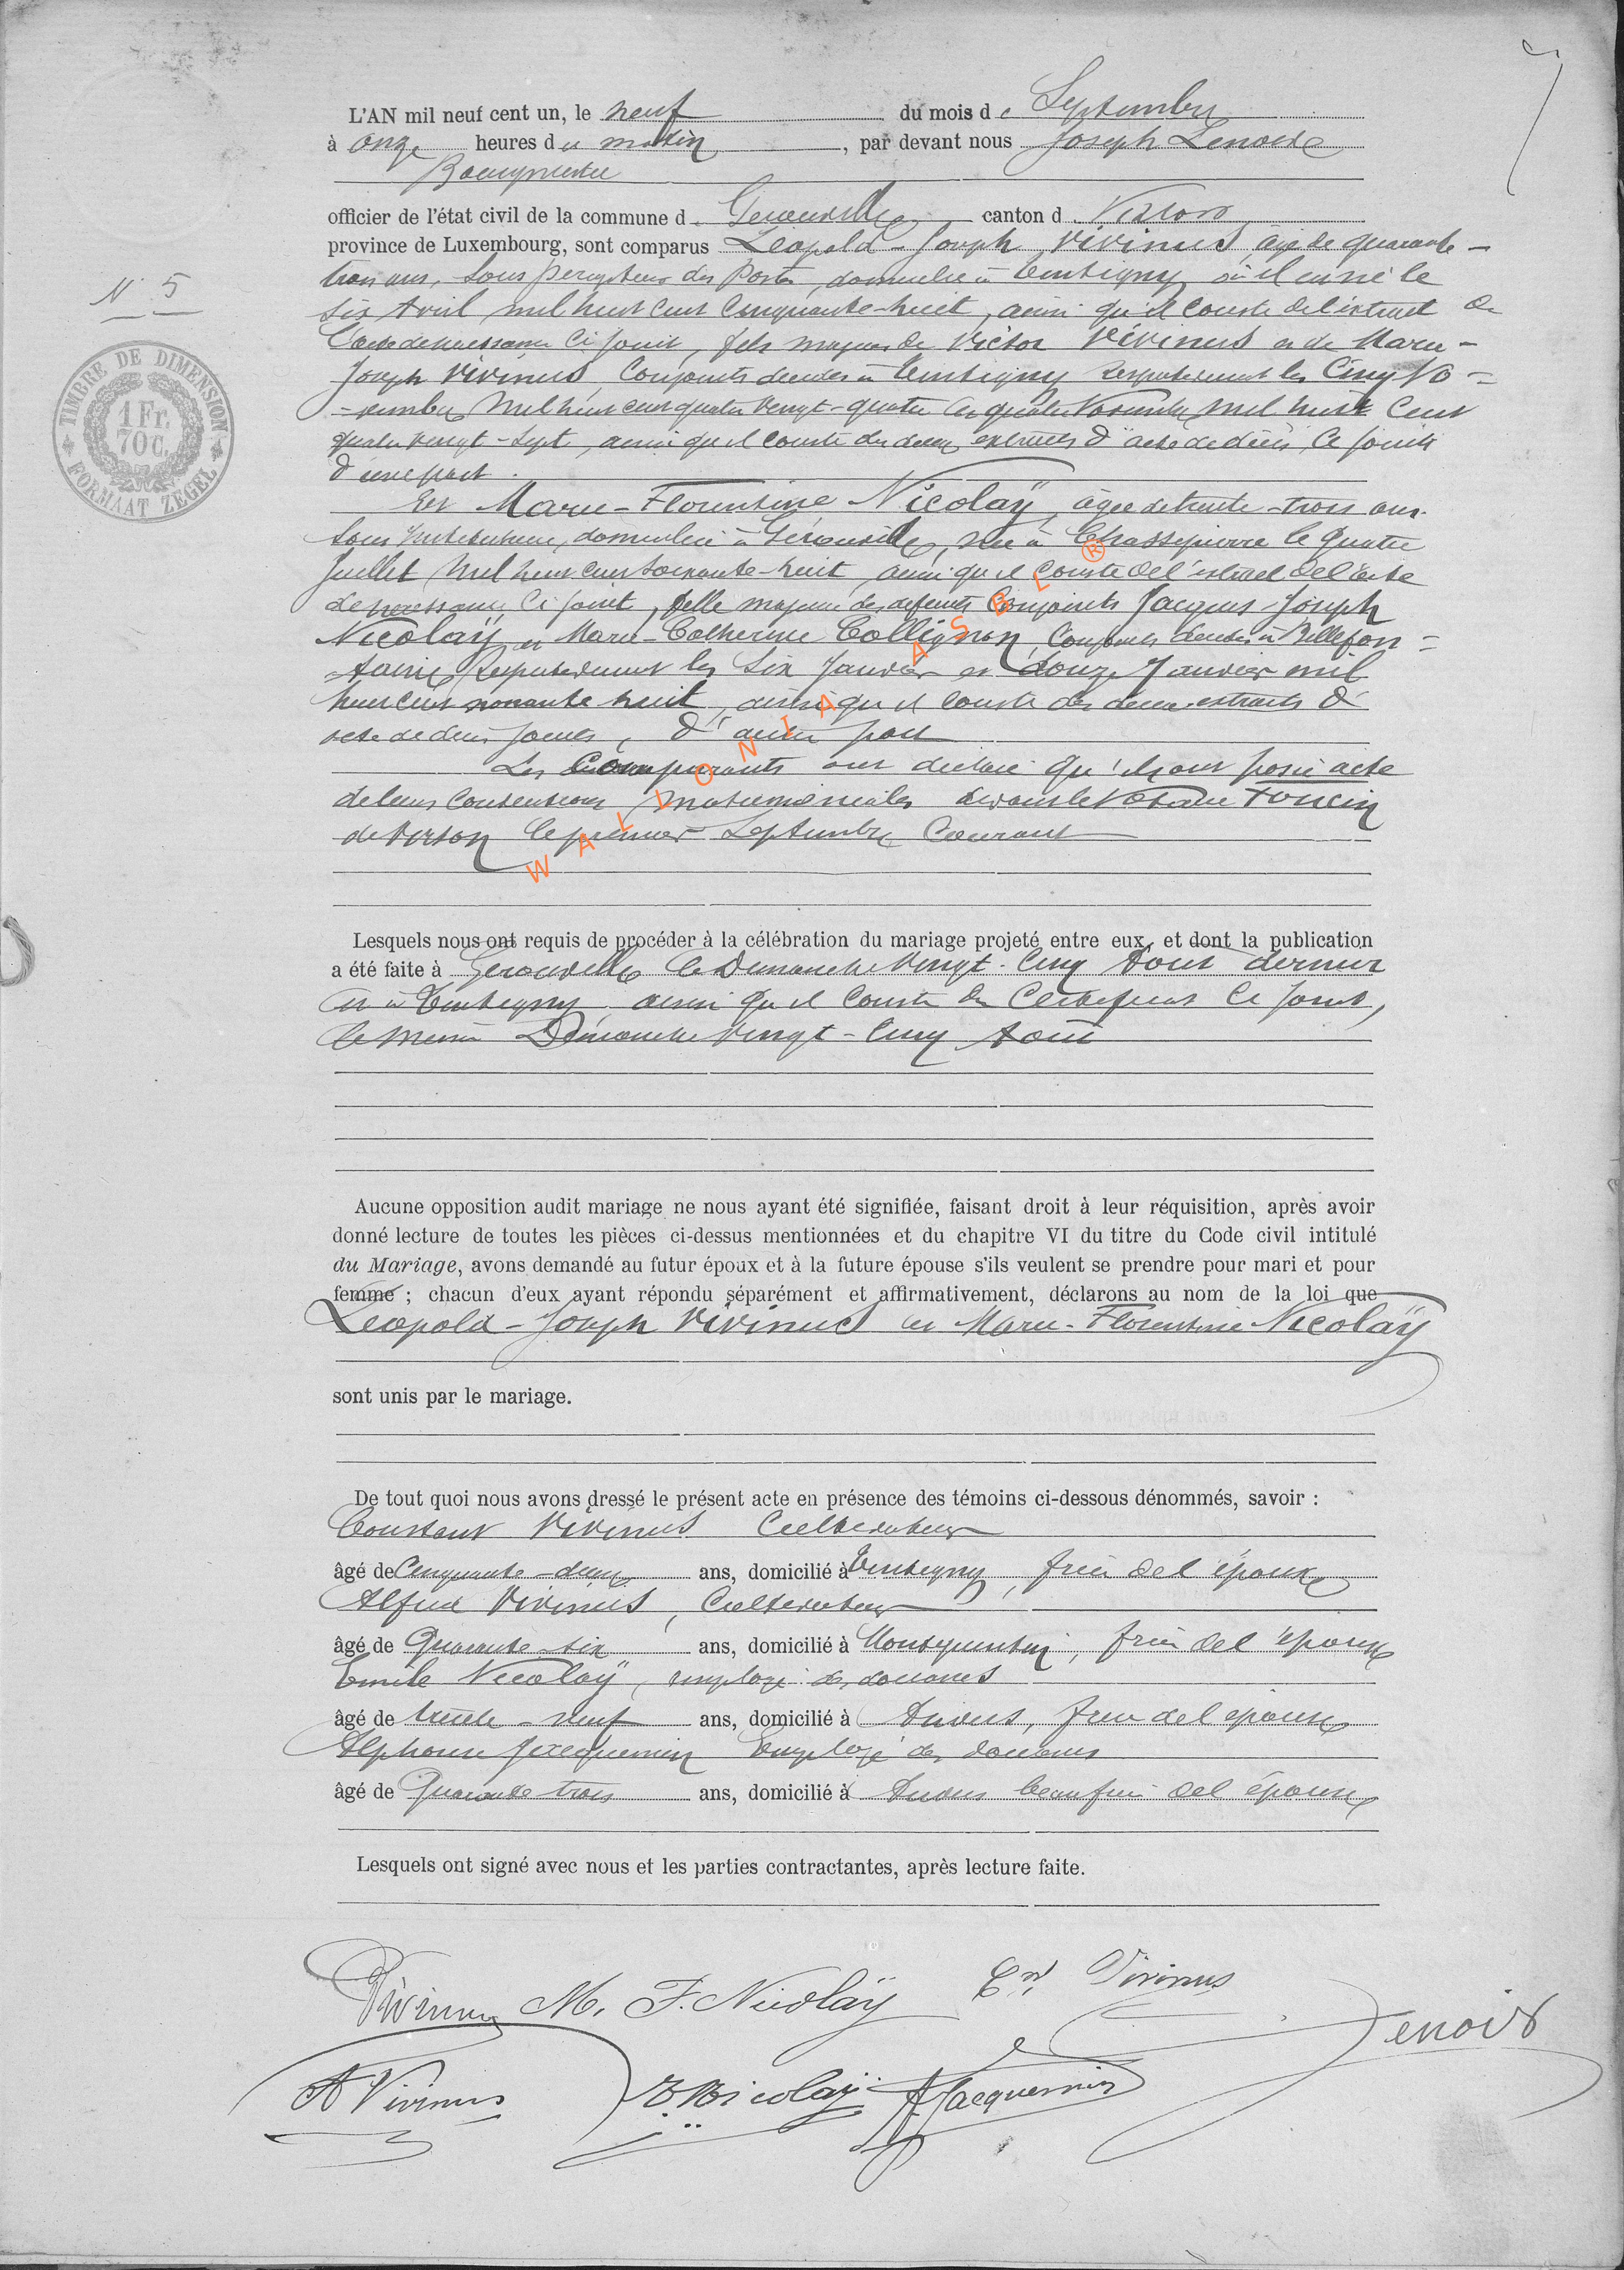 L'AN mil neuf cent un, le neuf du mois de Septembre
à onze heures du matin, par devant nous Joseph Lenoir
Bourgmestre
officier de l'état civil de la commune d Gerouville canton d Virton
province de Luxembourg, sont comparus Léopold-Joseph Vivinus, âgé de quarante-
N° 5
trois ans, Sous percepteur des Postes, domicilié à Tintigny où il est né le
six Avril mil huit cent cinquante-huit, ainsi qu'il conste de l'extrait de
l'acte de naissance ci joint, fils majeur de Victor Vivinus et de Marie-
Joseph Vivinus, Conjoints décédés à Tintigny respectivement les Cinq No=
=vembre Mil huit cent quatre vingt-quatre et quatre Novembre mil huit cent
quatre vingt-sept, ainsi qu'il conste des deux extraits d'acte de décès ci joints
d'une part.
TIMBRE DE DIMENSION
1 Fr.
70 C.
FORMAAT ZEGEL
Et Marie-Florentine Nicolaÿ, âgée de trente-trois ans
sous institutrice, domiciliée à Gérouville, née à Chassepierre le quatre
Juillet Mil huit cent soixante-huit, ainsi qu'il conste de l'extrait de l'acte
de naissance ci joint, fille majeure des défunts conjoints Jacques-Joseph
Nicolaÿ et Marie-Catherine Collignon, Conjoints décédés à Bellefon=
=taine respectivement les six Janvier et douze Janvier mil
huit cent nonante huit, ainsi qu'il conste des deux extraits d'
acte de décès joints, d'autre part
Les Comparants ont déclaré qu'ils ont passé acte
de leurs conventions matrimoniales devant le Notaire
de Virton le premier Septembre Courant
WALLONIA ASBL ®
Lesquels nous ont requis de procéder à la célébration du mariage projeté entre eux, et dont la publication
a été faite à Gerouville le Dimanche Vingt-Cinq Aout dernier
et à Tintigny, ainsi qu'il conste du Certificat ci joint,
le même Dimanche Vingt-Cinq Août
Aucune opposition audit mariage ne nous ayant été signifiée, faisant droit à leur réquisition, après avoir
donné lecture de toutes les pièces ci-dessus mentionnées et du chapitre VI du titre du Code civil intitulé
du Mariage, avons demandé au futur époux et à la future épouse s'ils veulent se prendre pour mari et pour
femme ; chacun d'eux ayant répondu séparément et affirmativement, déclarons au nom de la loi que
Léopold-Joseph Vivinus et Marie-Florentine Nicolaÿ
sont unis par le mariage.
De tout quoi nous avons dressé le présent acte en présence des témoins ci-dessous dénommés, savoir :
Constant Vivinus Cultivateur
âgé de Cinquante-deux ans, domicilié à Tintigny, frère de l'époux
Alfred Vivinus, Cultivateur
âgé de Quarante-six ans, domicilié à Montquintin, frère de l'époux
Emile Nicolaÿ, employé des douanes
âgé de trente-neuf ans, domicilié à Anvers, frère de l'épouse
Alphonse Jacquemin Employé des douanes
âgé de Quarante trois ans, domicilié à Anvers beau frère de l'épouse
Lesquels ont signé avec nous et les parties contractantes, après lecture faite.
Vivinus M. F. Nicolaÿ Ct Vivinus
Lenoir
A Vivinus E Nicolaÿ A Jacquemin